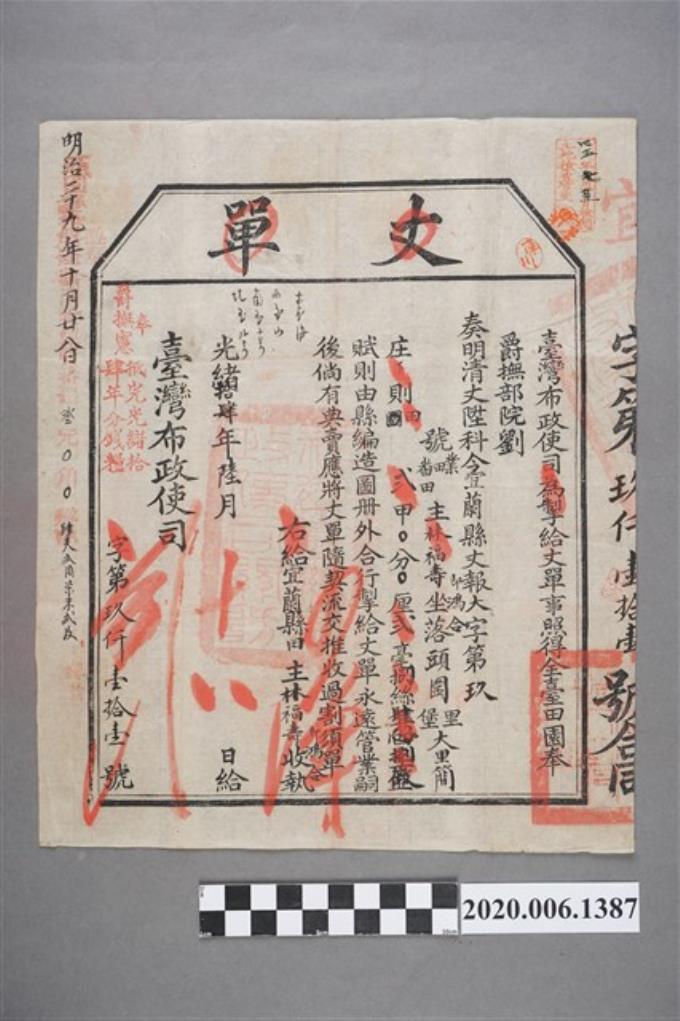 丈單
字第玖仟壹拾壹號合同
臺灣布政使司為掣給丈單事照得全臺田園奉
爵撫部院劉
奏明清丈陞科今宜蘭縣丈報大字第玖
號業田主林福壽坐落頭圍里堡大里簡
庄下則田弍甲〇分〇厘弍毫捌絲
賦則由縣編造圖册外合行掣給丈單永遠管業嗣
後倘有典賣應將丈單隨契流交推收過割須單
右給宜蘭縣田主林福壽鴻合收執
光緒拾肆年陸月日給
臺灣布政使司
字第玖仟壹拾壹號
奉
爵撫憲
光緒拾
肆年分錢糧
明治二十九年十月廿八日
2020.006.1387